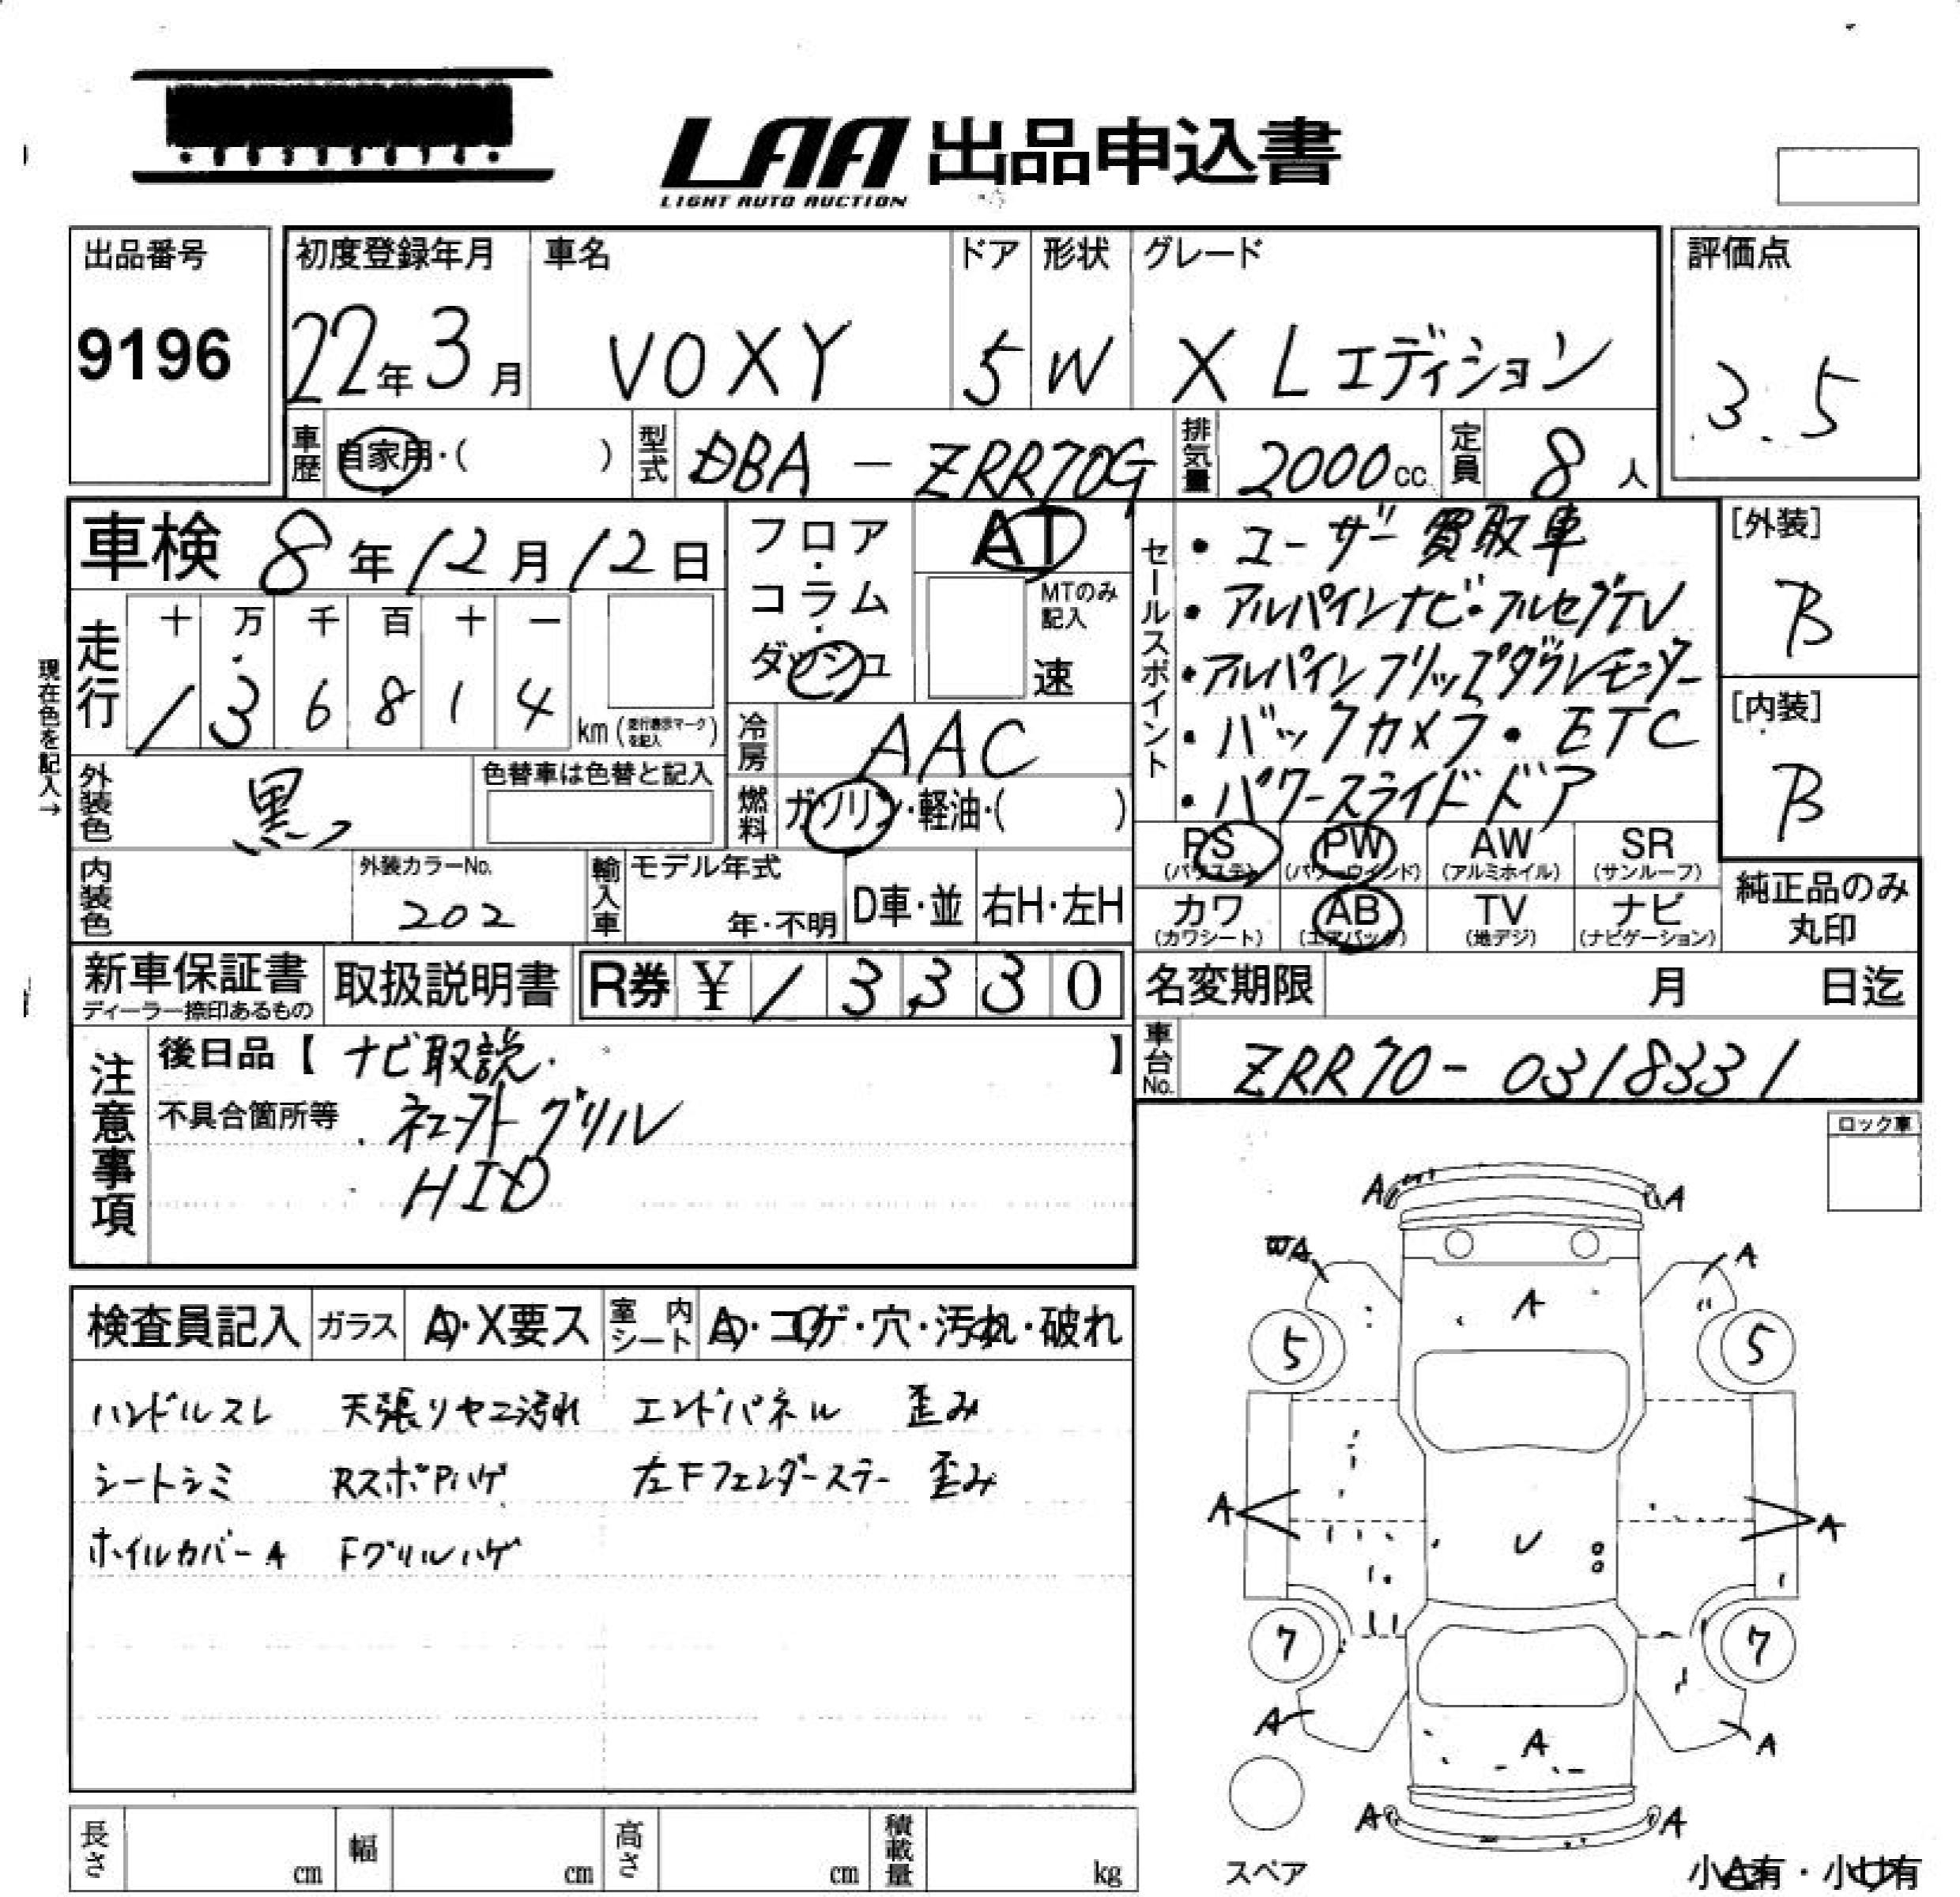 LAA 出品申込書
LIGHT AUTO AUCTION
出品番号
9196
初度登録年月
22年3月
車名
VOXY
ドア
5
形状
W
グレード
X Lエディション
評価点
3.5
車歴
自家用・( )
型式
DBA - ZRR70G
排気量
2000cc
定員
8人
車検 8年12月12日
フロア・コラム・ダッシュ
AT
MTのみ記入
速
走行
十 万 千 百 十 一
1 3 6 8 1 4
km(走行表示マークを記入)
現在色を記入→
外装色
黒
色替車は色替と記入
冷房
AAC
燃料
ガソリン・軽油・( )
セールスポイント
・ユーザー買取車
・アルパインナビ・フルセグTV
・アルパインフリップダウンモニター
・バックカメラ・ETC
・パワースライドドア
[外装]
B
[内装]
B
PS (パワステ)
PW (パワーウインド)
AW (アルミホイル)
SR (サンルーフ)
カワ (カワシート)
AB (エアバッグ)
TV (地デジ)
ナビ (ナビゲーション)
純正品のみ丸印
内装色
外装カラーNo.
202
輸入車
モデル年式
年・不明
D車・並
右H・左H
新車保証書
ディーラー捺印あるもの
取扱説明書
R券 ¥13330
名変期限 月 日迄
車台No.
ZRR70-0318331
注意事項
後日品【ナビ取説. 】
不具合箇所等
社外グリル
HID
ロック車
検査員記入
ガラス
A・X要ス
室内シート
A・コゲ・穴・汚れ・破れ
ハンドルスレ 天張りヤニ汚れ エンドパネル 歪み
シートシミ RスポPハゲ 左Fフェンダーステー 歪み
ホイルカバーA Fグリルハゲ
A A
WA A
A
5 5
A A
U
7 7
A A
A
A A
スペア
小A有・小U有
長さ cm
幅 cm
高さ cm
積載量 kg